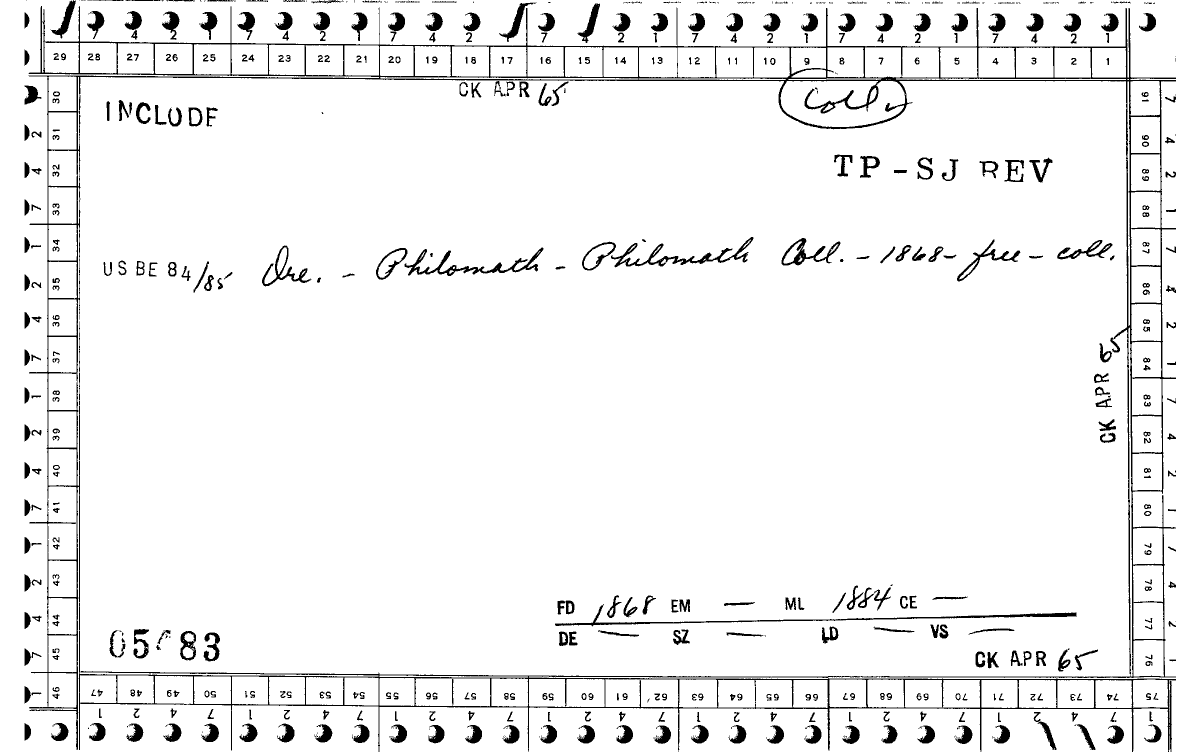 7 4 2 1 7 4 2 1 7 4 2 1 7 4 2 1 7 4 2 1 7 4 2 1 7 4 2 1
29 28 27 26 25 24 23 22 21 20 19 18 17 16 15 14 13 12 11 10 9 8 7 6 5 4 3 2 1
CK APR 65
INCLUDE
Coll
TP-SJ REV
US BE 84/85 Ore. - Philomath - Philomath Coll. - 1868 - free - coll.
CK APR 65
FD 1868 EM — ML 1884 CE —
DE — SZ — LD — VS —
05 83
CK APR 65
30 31 32 33 34 35 36 37 38 39 40 41 42 43 44 45 46
91 90 89 88 87 86 85 84 83 82 81 80 79 78 77 76
47 48 49 50 51 52 53 54 55 56 57 58 59 60 61 62 63 64 65 66 67 68 69 70 71 72 73 74 75
1 2 4 7 1 2 4 7 1 2 4 7 1 2 4 7 1 2 4 7 1 2 4 7 1 2 4 7 1